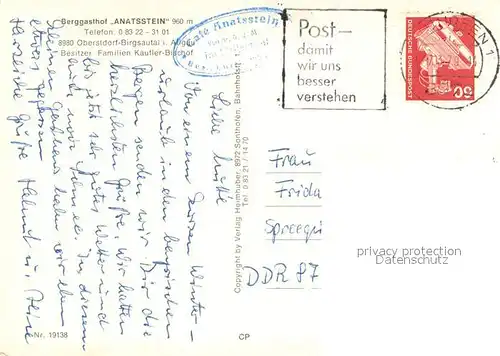 Berggasthof „ANATSSTEIN" 960 m
Telefon: 0 83 22 - 31 01
8980 Oberstdorf-Birgsautal i. Allgäu
Besitzer: Familien Kaufler-Bischof
Post-
damit
wir uns
besser
verstehen
DEUTSCHE BUNDESPOST
50
Liebe Mutti
Von einem kurzen Winter-
urlaub in den bayrischen
Bergen senden wir Dir die
herzlichsten Grüße. Wir hatten
bis jetzt sehr gutes Wetter und
auch viel Schnee. In diesem
kleinen Gasthaus haben wir eben
etwas gegessen
Herzliche Grüße Helmut u.
Copyright by Verlag Heimhuber, 8972 Sonthofen, Bahnhofstr.
Tel. 0 83 21 / 14 70
Frau
Frida
Spreegu
DDR 87
privacy protection
Datenschutz
Nr. 19138
CP